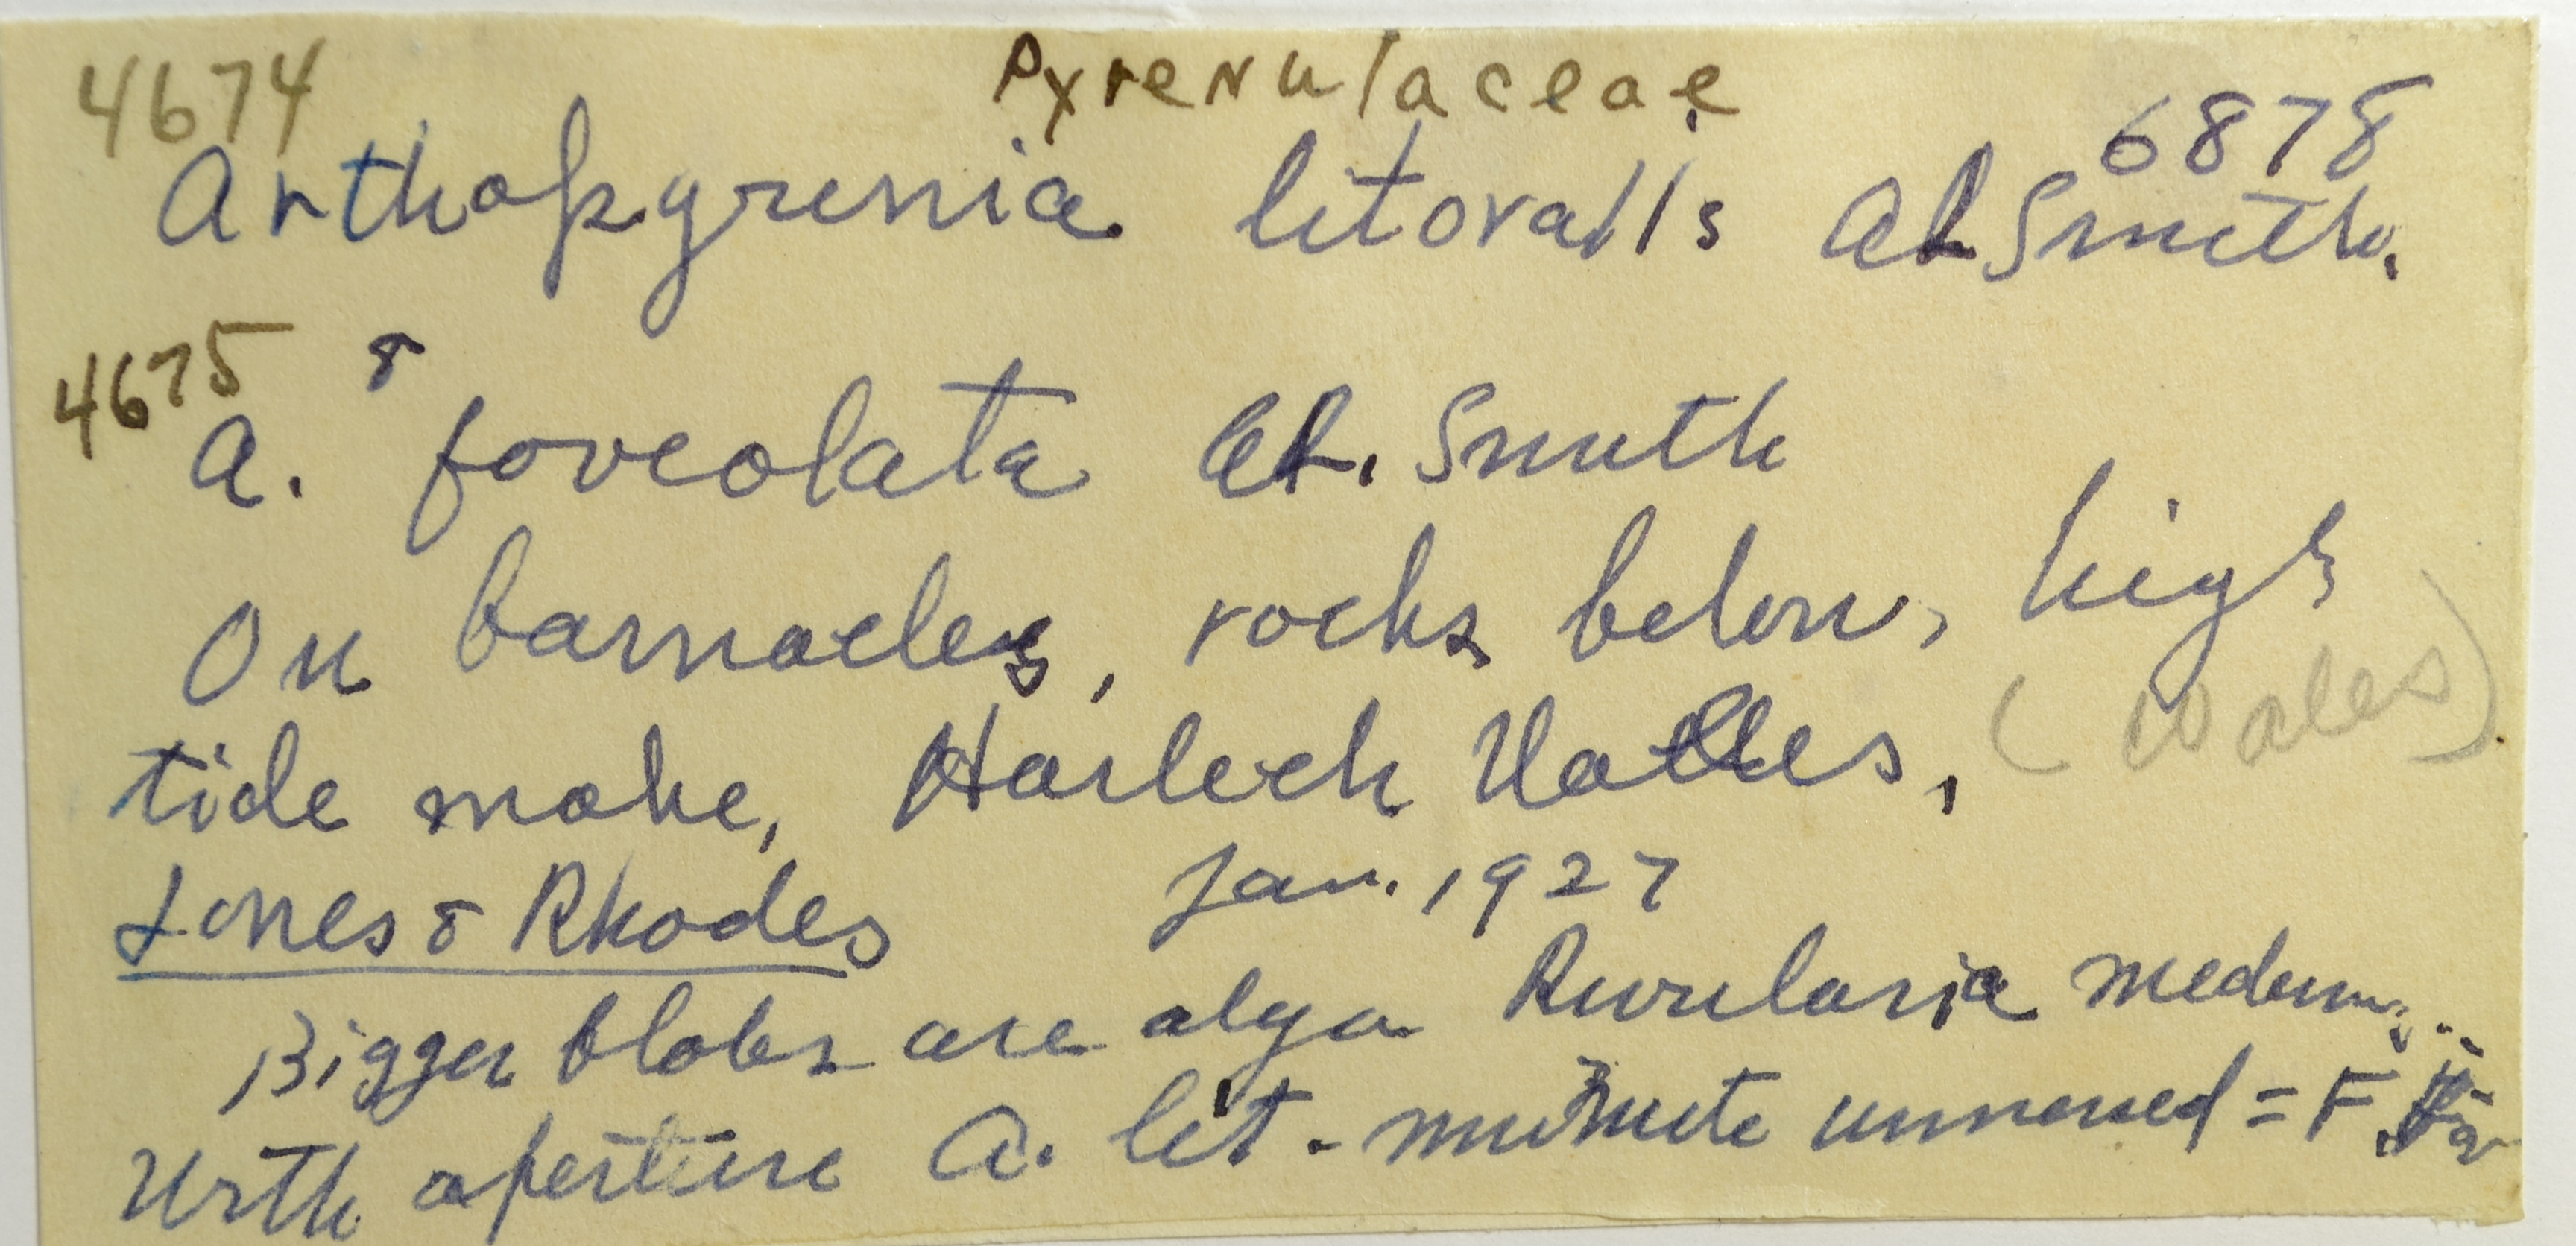 4674 Pyrenulaceae 6878
Arthopyrenia litoralis AL Smith.
4675 &
A. foveolata AL. Smith
On barnacles, rocks below, high
tide make, Harlech Walles, (Wales)
Jones & Rhodes Jan. 1927
Bigger blobs are alga Rivularia
With aperture A. lit. - minute = F